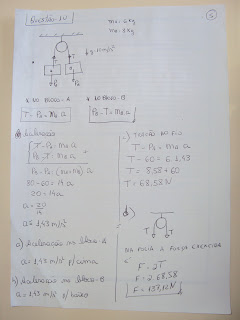 Questão 14
5
mA = 6 Kg
mB = 8 Kg
g = 10 m/s²
T
T
A
B
PA
PB
* No BLOCO - A
* No BLOCO - B
T - PA = mA.a
PB - T = mB.a
Aceleração
T - PA = mA.a
PB - T = mB.a
PB - PA = (mA + mB).a
80 - 60 = 14.a
20 = 14.a
a = 20/14
a ≅ 1,43 m/s²
a) Aceleração no bloco A
a = 1,43 m/s² p/ cima
b) Aceleração no bloco B
a = 1,43 m/s² p/ baixo
c) TENSÃO NO FIO
T - PA = mA.a
T - 60 = 6.1,43
T = 8,58 + 60
T = 68,58 N
d)
T
T
NA POLIA A FORÇA EXERCIDA
É
F = 2T
F = 2.68,58
F = 137,16 N